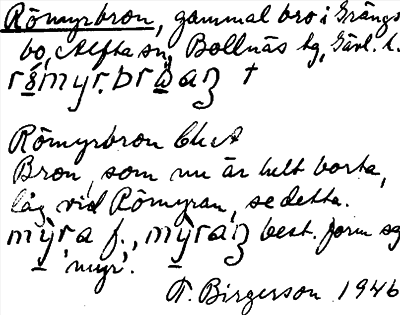 Römyrbron, gammal bro i Grängs
bo, Alfta sn, Bollnäs tg, Gävl. l.
Römyrbron
Bron, som nu är helt borta,
låg vid Römyran, se detta.
myra f., best. form sg
'myr'.
T. Birgerson 1946